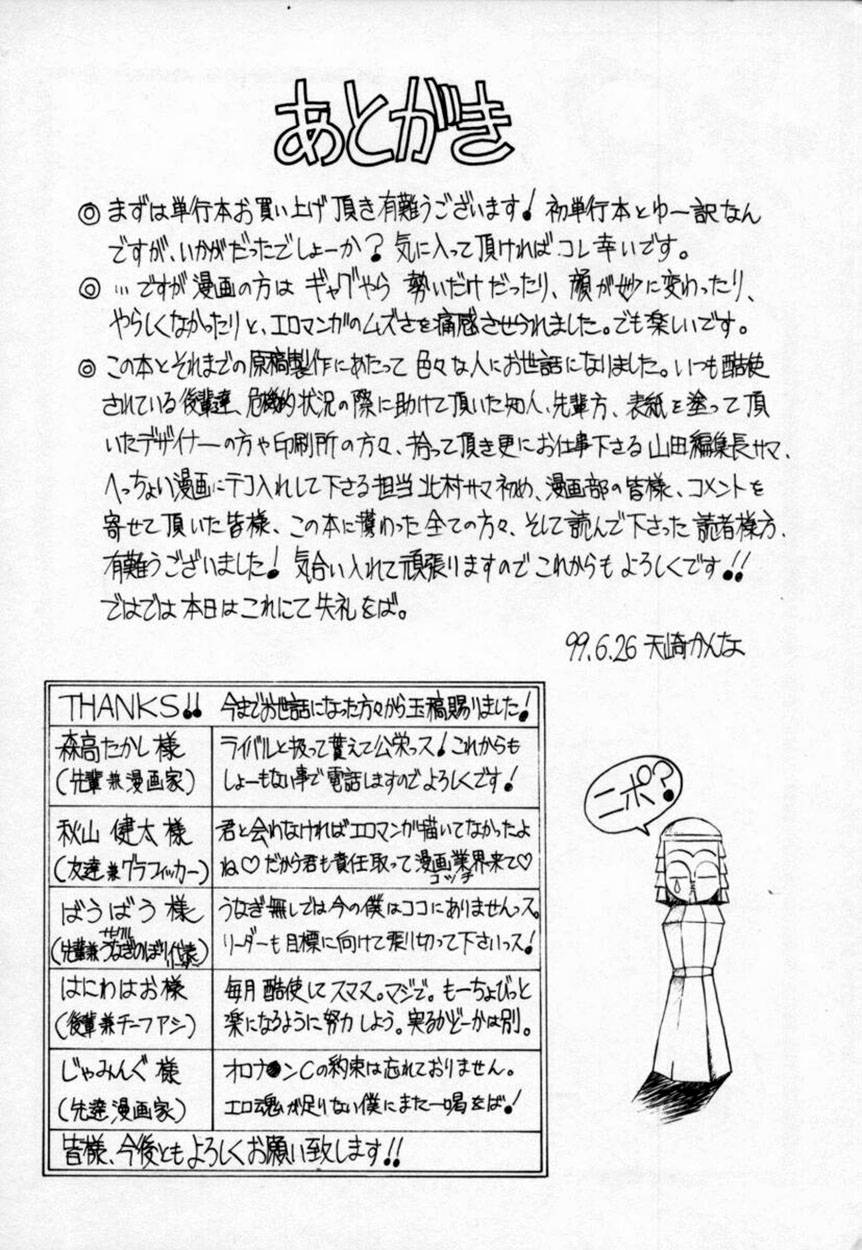 あとがき
◎ まずは単行本お買い上げ頂き有難うございます！初単行本とゆー訳なん
ですが、いかがだったでしょーか？気に入って頂ければコレ幸いです。
◎ …ですが漫画の方はギャグやら勢いだけだったり、顔が妙に変わったり、
やらしくなかったりと、エロマンガのムズさを痛感させられました。でも楽しいです。
◎ この本とそれまでの原稿製作にあたって色々な人にお世話になりました。いつも酷使
されている後輩達、危機的状況の際に助けて頂いた知人、先輩方、表紙を塗って頂
いたデザイナーの方や印刷所の方々、拾って頂き更にお仕事下さる山田編集長サマ、
へっちょい漫画にテコ入れして下さる担当北村サマ初め、漫画部の皆様、コメントを
寄せて頂いた皆様、この本に携わった全ての方々、そして読んで下さった読者様方、
有難うございました！気合い入れて頑張りますのでこれからもよろしくです！！
ではでは本日はこれにて失礼をば。
99.6.26 天崎かんな
THANKS!! 今までお世話になった方々から玉稿賜りました！
森高たかし様
(先輩兼漫画家)
ライバルと扱って貰えて公栄っス！これからも
しょーもない事で電話しますのでよろしくです！
秋山健太様
(友達兼グラフィッカー)
君と会わなければエロマンガ描いてなかったよ
ね♡だから君も責任取って漫画業界来て♡
コッチ
ばうばう様
サークル
(先輩兼うなぎのぼり代表)
うなぎ無しでは今の僕はココにありませんっス。
リーダーも目標に向けて乗り切って下さいっス！
はにわはお様
(後輩兼チーフアシ)
毎月酷使してスマヌ。マジで。もーちょびっと
楽になるように努力しよう。実るかどーかは別。
じゃみんぐ様
(先達漫画家)
オロナ●ンCの約束は忘れておりません。
エロ魂が足りない僕にまた一喝をば！
皆様、今後ともよろしくお願い致します！！
ニポ？